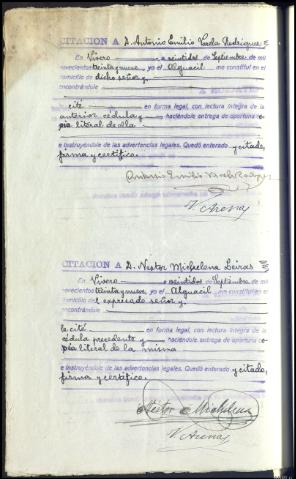 CITACION A D. Antonio Emilio Varela Rodriguez
En Vivero a veintidos de Septiembre de mil
novecientos treinta y nueve, yo el Alguacil me constituí en el
domicilio de dicho señor, y
encontrándole
le cité en forma legal, con lectura íntegra de la
anterior cédula y haciéndole entrega de oportuna co-
pia literal de ella
e instruyéndole de las advertencias legales. Quedó enterado y citado,
firma y certifico.
Antonio Emilio Varela Rodriguez
V. Arenas
CITACION A D. Nestor Michelena Leiras
En Vivero a veintidos de Septiembre de mil
novecientos treinta y nueve, yo el Alguacil me constituí en el
domicilio del expresado señor y
encontrándole
le cité en forma legal, con lectura íntegra de la
cédula precedente y haciéndole entrega de oportuna co-
pia literal de la misma
e instruyéndole de las advertencias legales. Quedó enterado y citado,
firma y certifico.
Néstor Michelena
V. Arenas